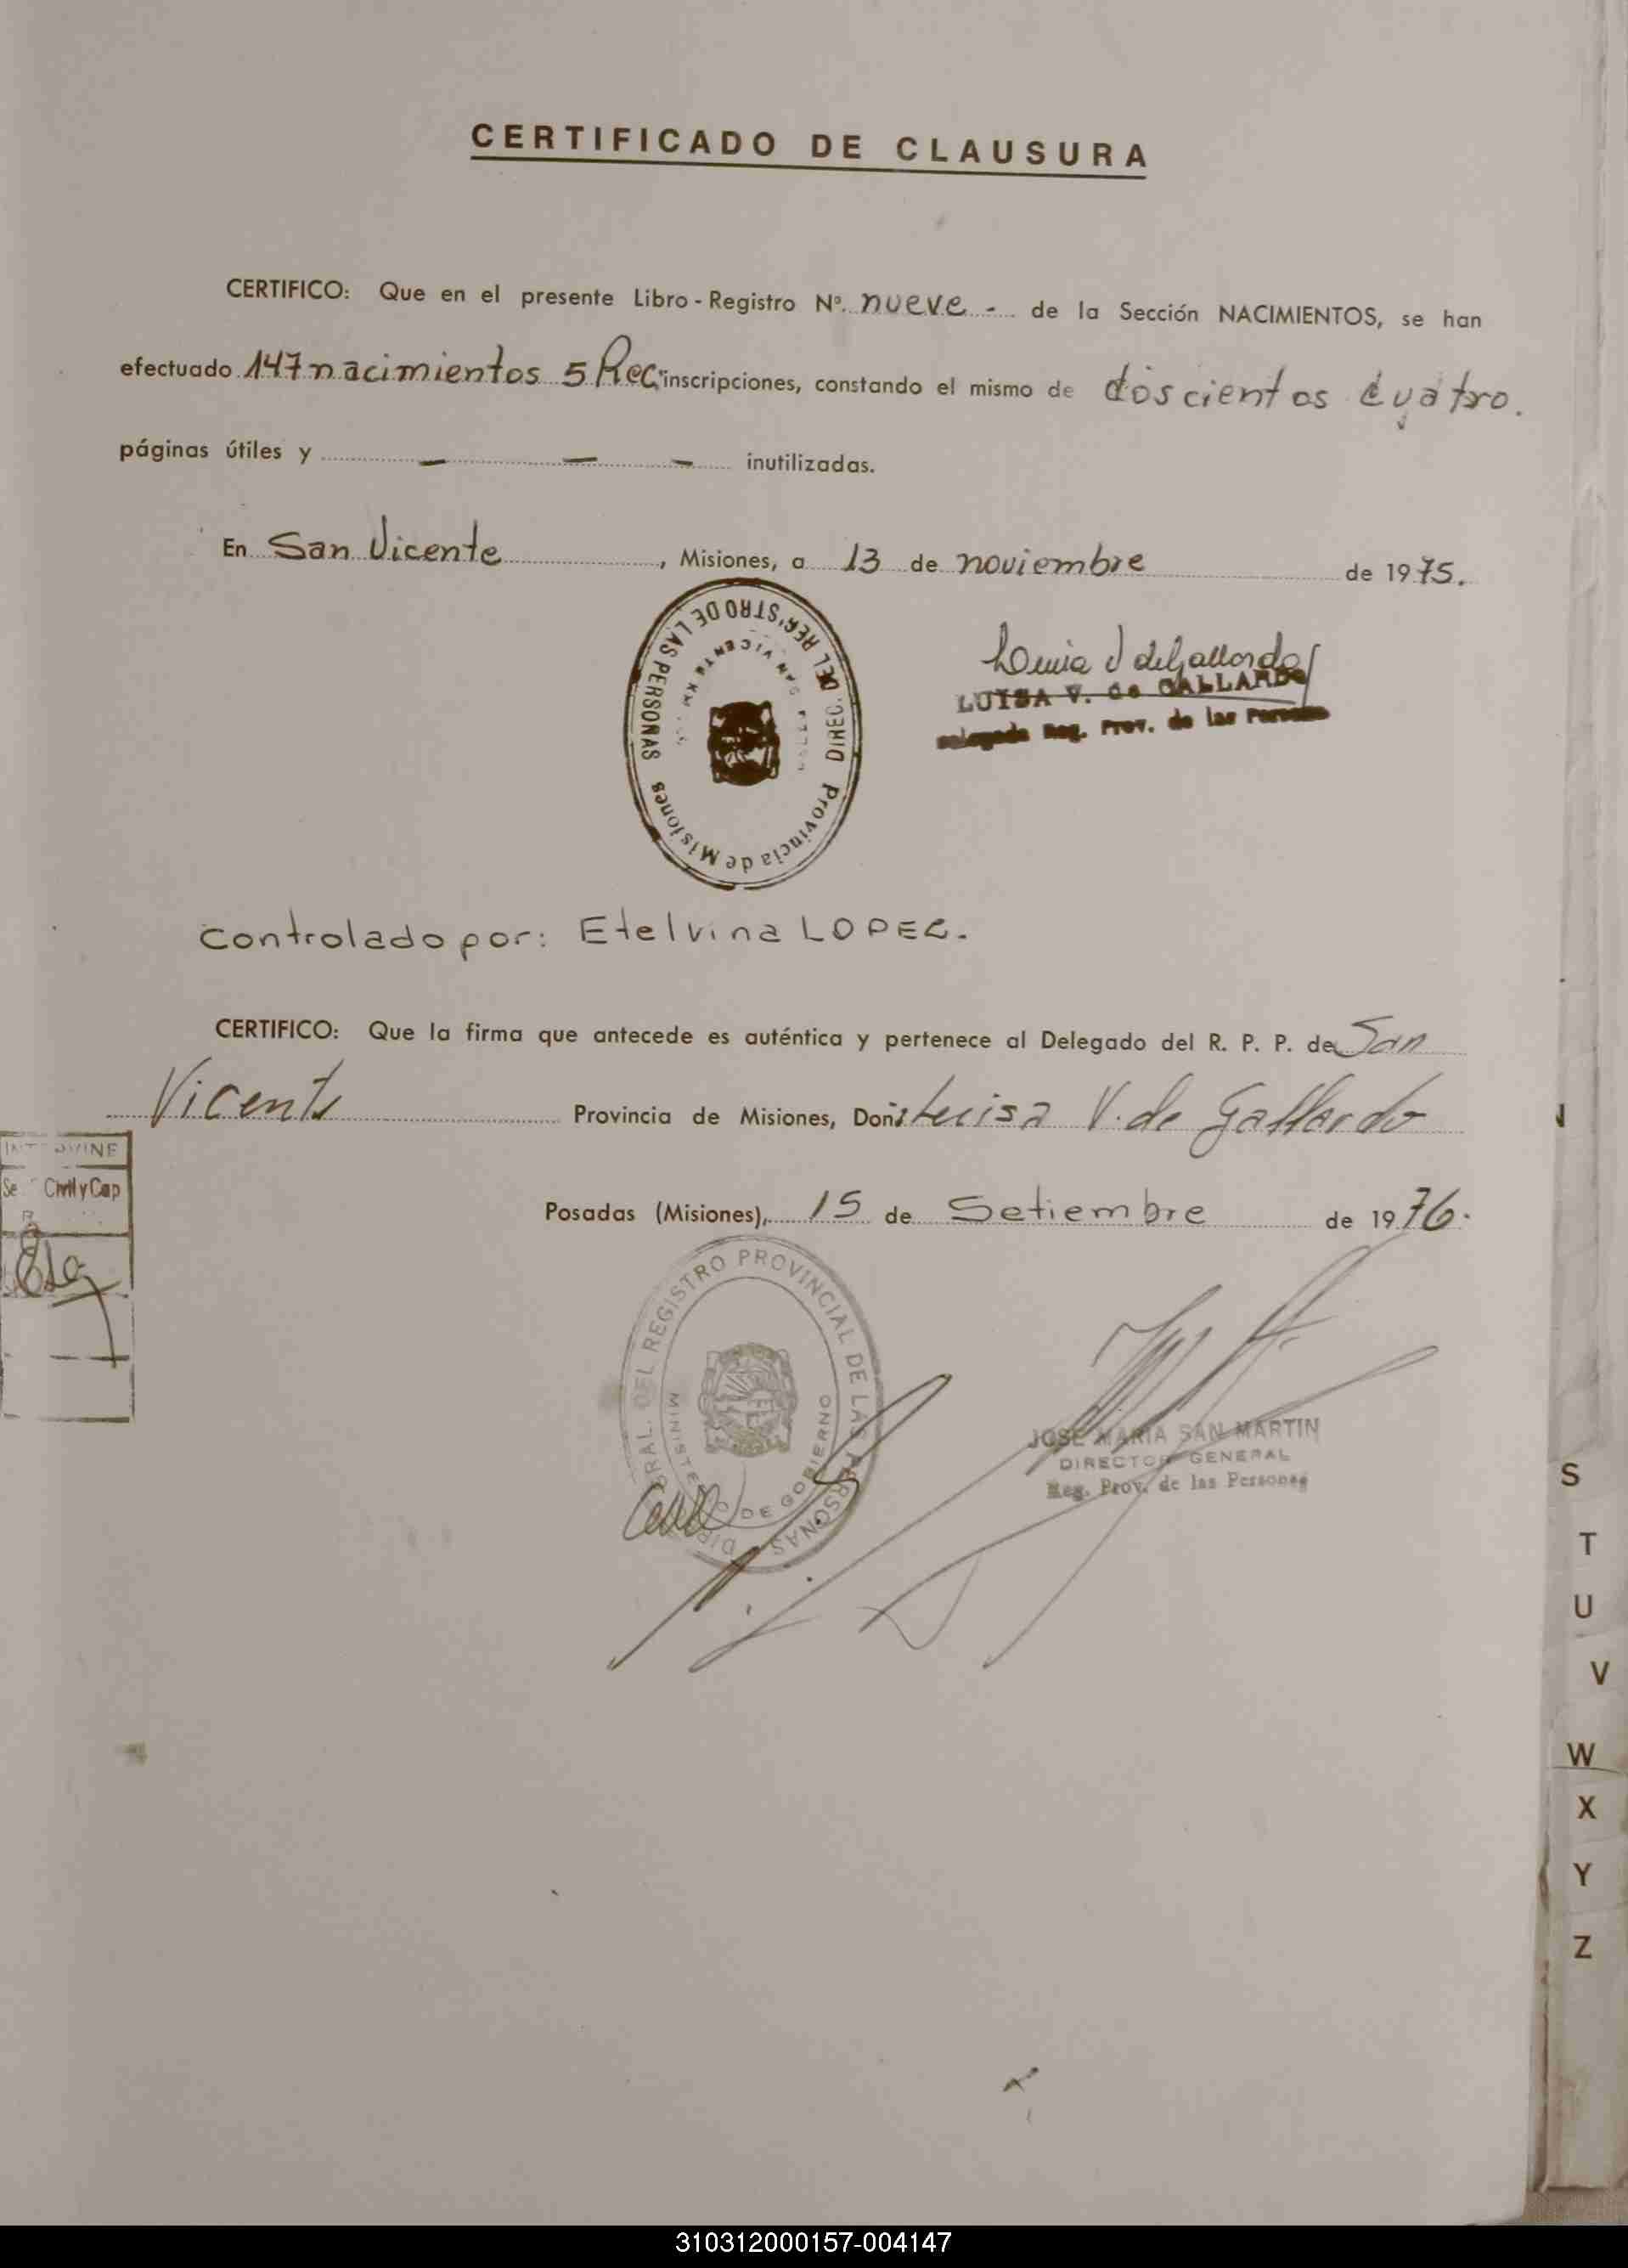 CERTIFICADO DE CLAUSURA
CERTIFICO: Que en el presente Libro - Registro Nº. nueve - de la Sección NACIMIENTOS, se han
efectuado 147 nacimientos 5 Rec. inscripciones, constando el mismo de doscientos cuatro.
páginas útiles y — — — inutilizadas.
En San Vicente, Misiones, a 13 de noviembre de 1975.
DIREC. DEL REGISTRO DE LAS PERSONAS
SAN VICENTE KM
Provincia de Misiones
LUISA V. de GALLARDO
Delegada Reg. Prov. de las Personas
Controlado por: Etelvina LOPEZ.
CERTIFICO: Que la firma que antecede es auténtica y pertenece al Delegado del R. P. P. de San
Vicente Provincia de Misiones, Doña Luisa V. de Gallardo
INTERVINE
Civil y Cap
Posadas (Misiones), 15 de Setiembre de 1976.
GRAL. DEL REGISTRO PROVINCIAL DE LAS PERSONAS
MINISTERIO DE GOBIERNO
JOSE MARIA SAN MARTIN
DIRECTOR GENERAL
Reg. Prov. de las Personas
S
T
U
V
W
X
Y
Z
310312000157-004147